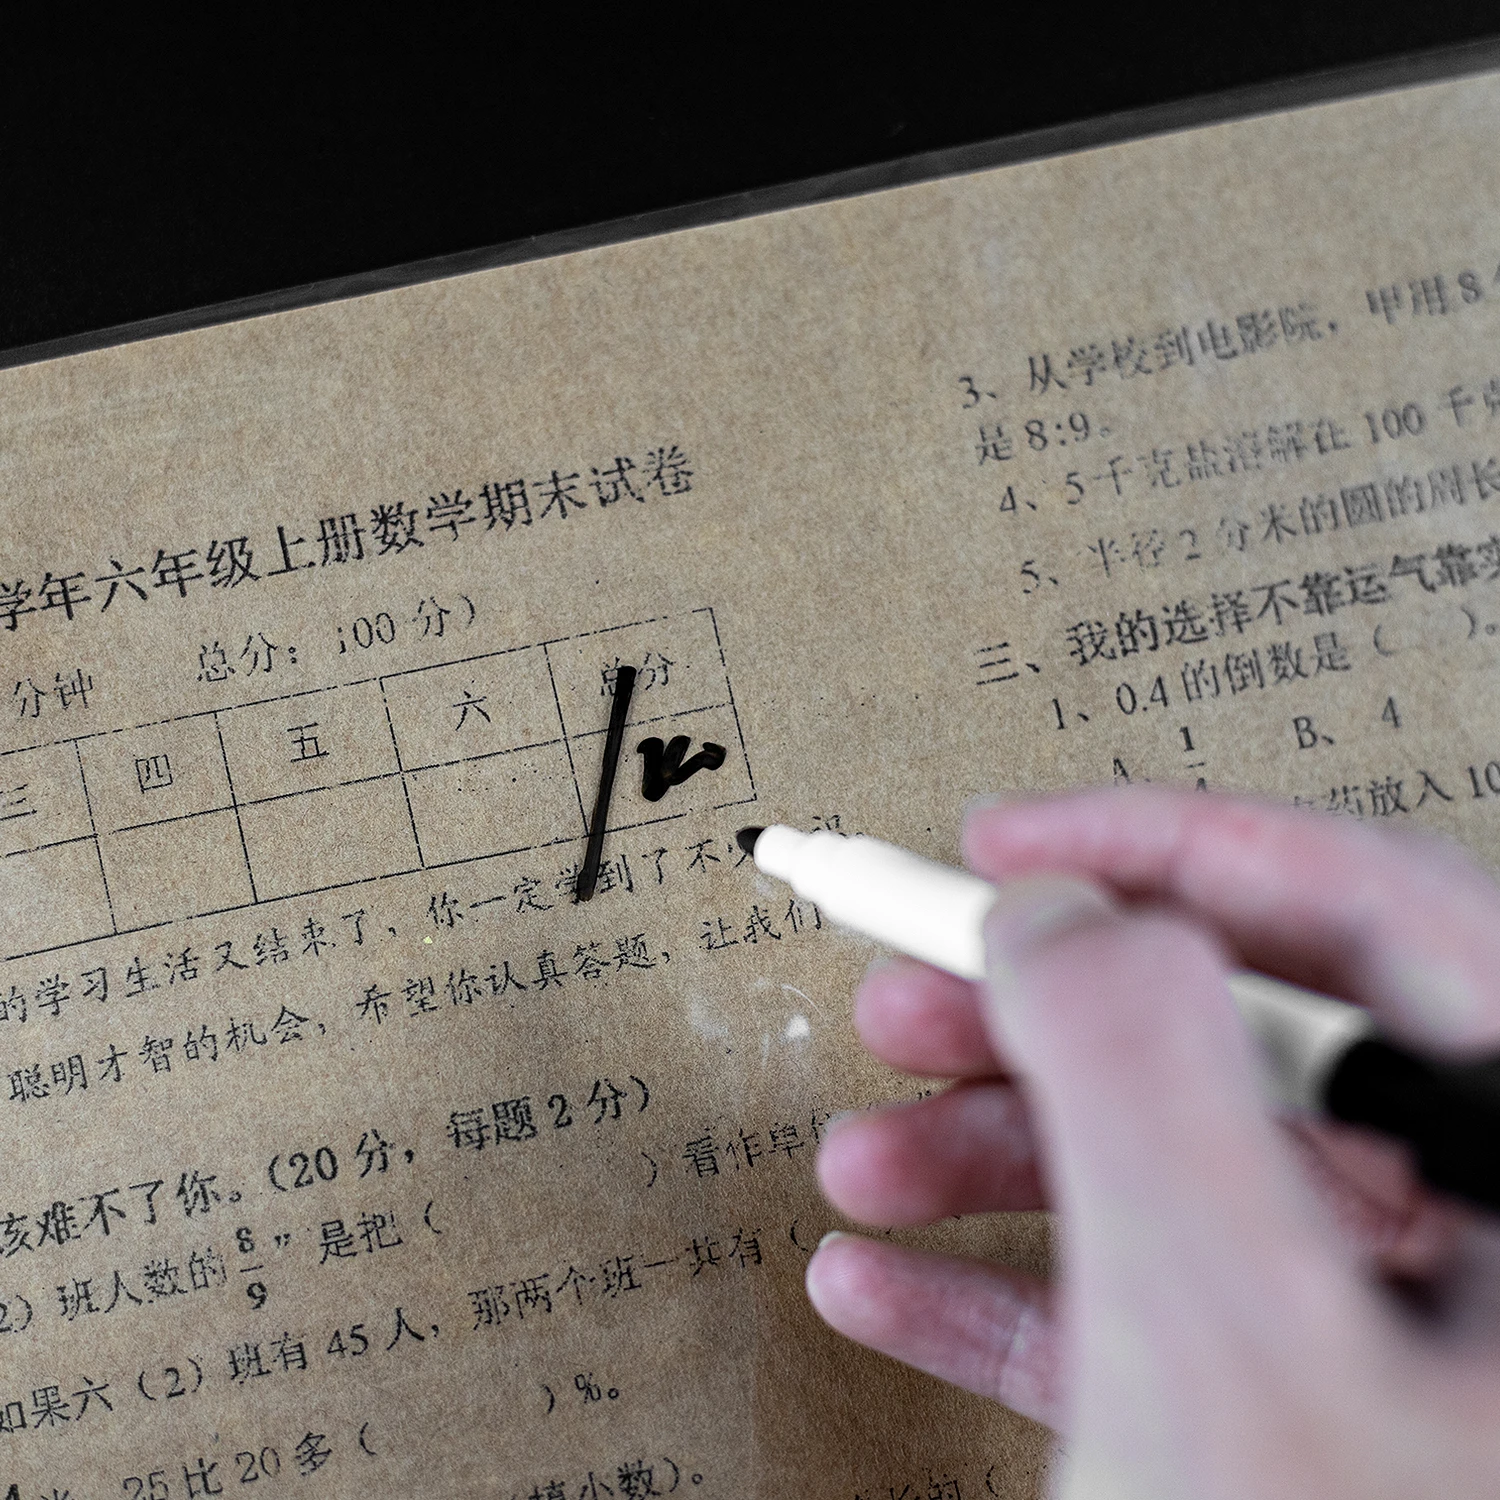 学年六年级上册数学期末试卷
分钟 总分：100分）
三 四 五 六 总分
的学习生活又结束了，你一定学到了不少
聪明才智的机会，希望你认真答题，让我们
该难不了你。（20分，每题2分）
2）班人数的8/9”是把（ ）看作单位
如果六（2）班有45人，那两个班一共有（
）%。
25比20多（
（填小数）。
3、从学校到电影院，甲用8
是8:9。
4、5千克盐溶解在100千克
5、半径2分米的圆的周长
三、我的选择不靠运气靠实
1、0.4的倒数是（ ）。
A、1/4 B、4
药放入10